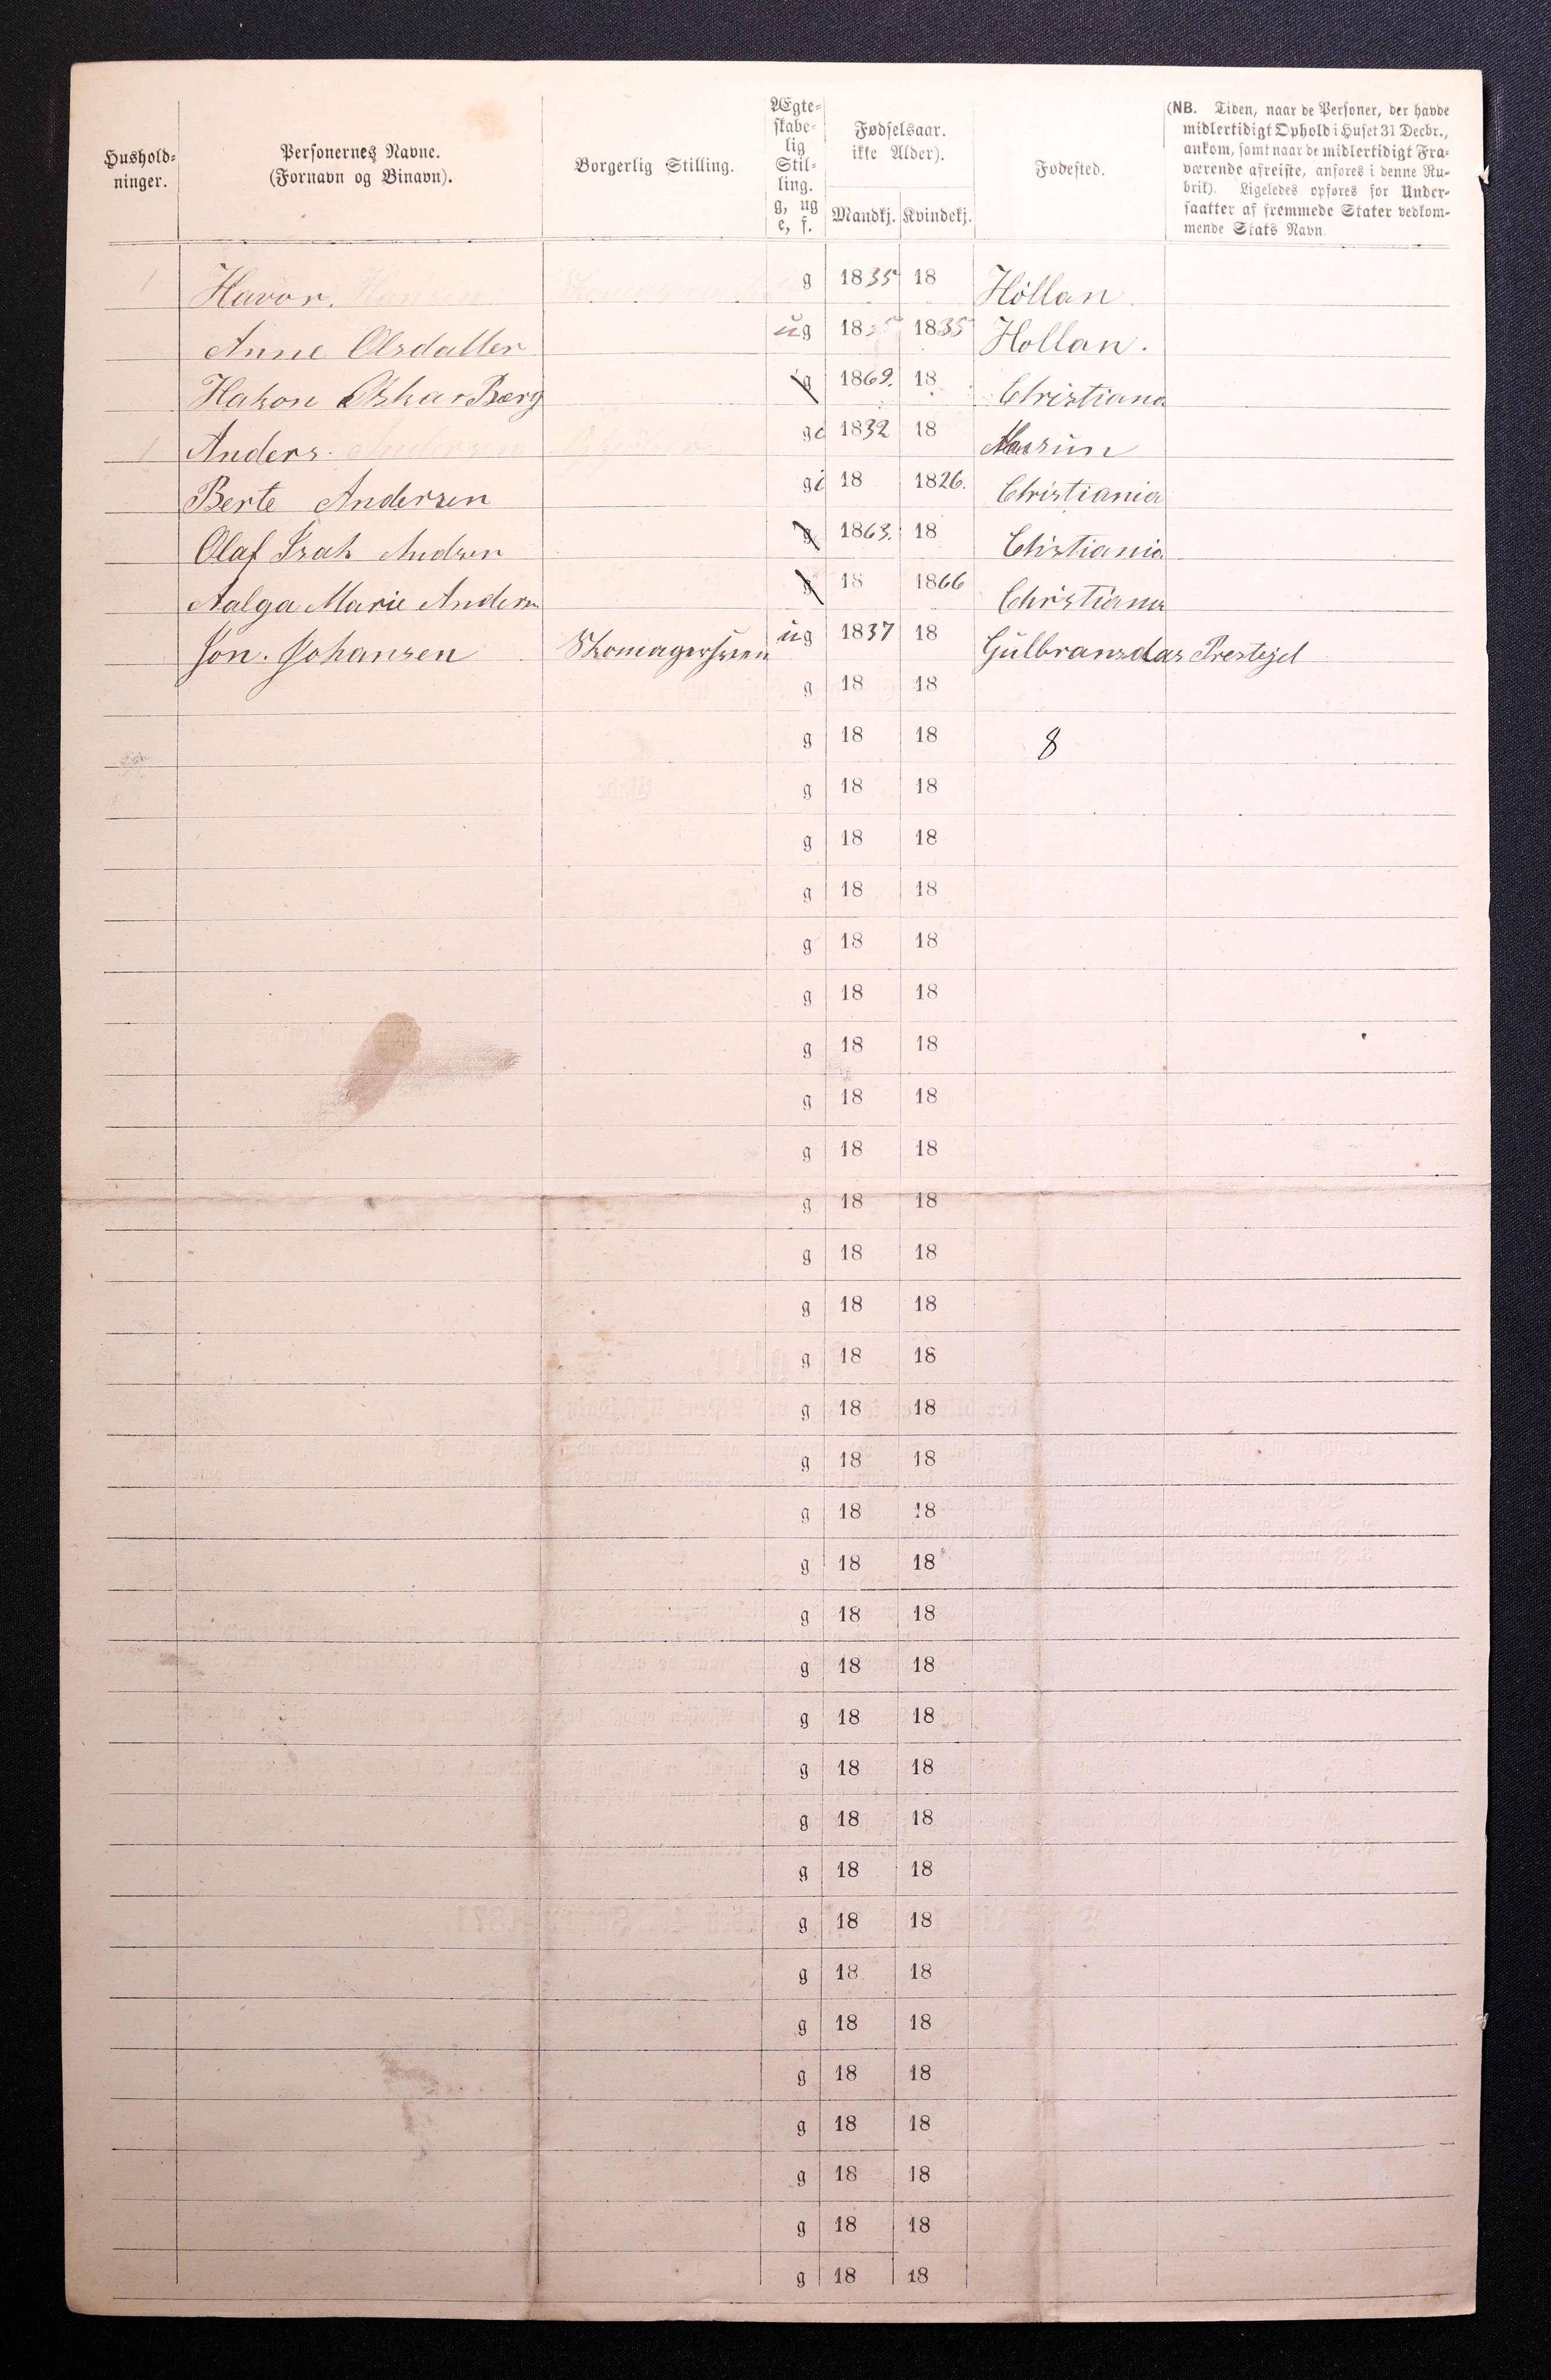 Hushold-
ninger.
Personernes Navne.
(Fornavn og Binavn).
Borgerlig Stilling.
Ægte-
skabe-
lig
Stil-
ling.
g, ug
e, f.
Fødselsaar.
ikke Alder).
Mandkj. Kvindekj.
Fødested.
(NB. Tiden, naar de Personer, der havde
midlertidigt Ophold i Huset 31 Decbr.,
ankom, samt naar de midlertidigt Fra-
værende afreiste, anføres i denne Ru-
brik). Ligeledes opføres for Under-
saatter af fremmede Stater vedkom-
mende Stats Navn
1 Havor. Hansen g 1835 18 Höllan
Anne Olsdatter ug 18 1835 Hollan.
Hakon Oskar Berg g 1869. 18 Christiana
1 Anders Andersen g 1832 18
Berte Andersen g 18 1826. Christiania
Olaf Isak Andsen g 1863. 18 Chistiania
Aalga Marie Andersn g 18 1866 Christiania
Jon. Johansen Skomagersven ug 1837 18 Gulbransdas Prestejel
g 18 18
g 18 18 8
g 18 18
g 18 18
g 18 18
g 18 18
g 18 18
g 18 18
g 18 18
g 18 18
g 18 18
g 18 18
g 18 18
g 18 18
g 18 18
g 18 18
g 18 18
g 18 18
g 18 18
g 18 18
g 18 18
g 18 18
g 18 18
g 18 18
g 18 18
g 18 18
g 18 18
g 18 18
g 18 18
g 18 18
g 18 18
g 18 18